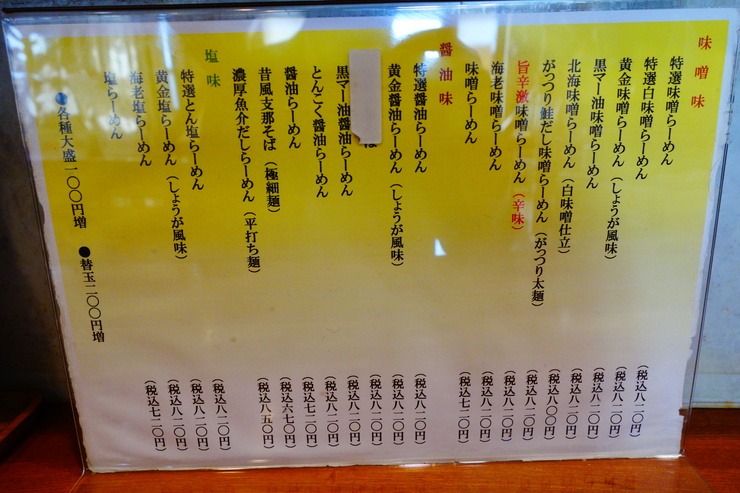 味噌味
特選味噌らーめん（税込八二〇円）
特選白味噌らーめん（税込八二〇円）
黄金味噌らーめん（しょうが風味）（税込八二〇円）
黒マー油味噌らーめん（税込八二〇円）
北海味噌らーめん（白味噌仕立）（税込八〇〇円）
がっつり鮭だし味噌らーめん（がっつり太麺）（税込八二〇円）
旨辛激味噌らーめん（辛味）（税込八二〇円）
海老味噌らーめん（税込八二〇円）
味噌らーめん（税込七二〇円）
醤油味
特選醤油らーめん（税込八二〇円）
黄金醤油らーめん（しょうが風味）（税込八二〇円）
（税込八二〇円）
黒マー油醤油らーめん（税込八二〇円）
とんこく醤油らーめん（税込八二〇円）
醤油らーめん（税込七二〇円）
昔風支那そば（極細麺）（税込六七〇円）
濃厚魚介だしらーめん（平打ち麺）（税込八五〇円）
塩味
特選とん塩らーめん（税込八二〇円）
黄金塩らーめん（しょうが風味）（税込八二〇円）
海老塩らーめん（税込八二〇円）
塩らーめん（税込七二〇円）
●各種大盛一〇〇円増
●替玉二〇〇円増